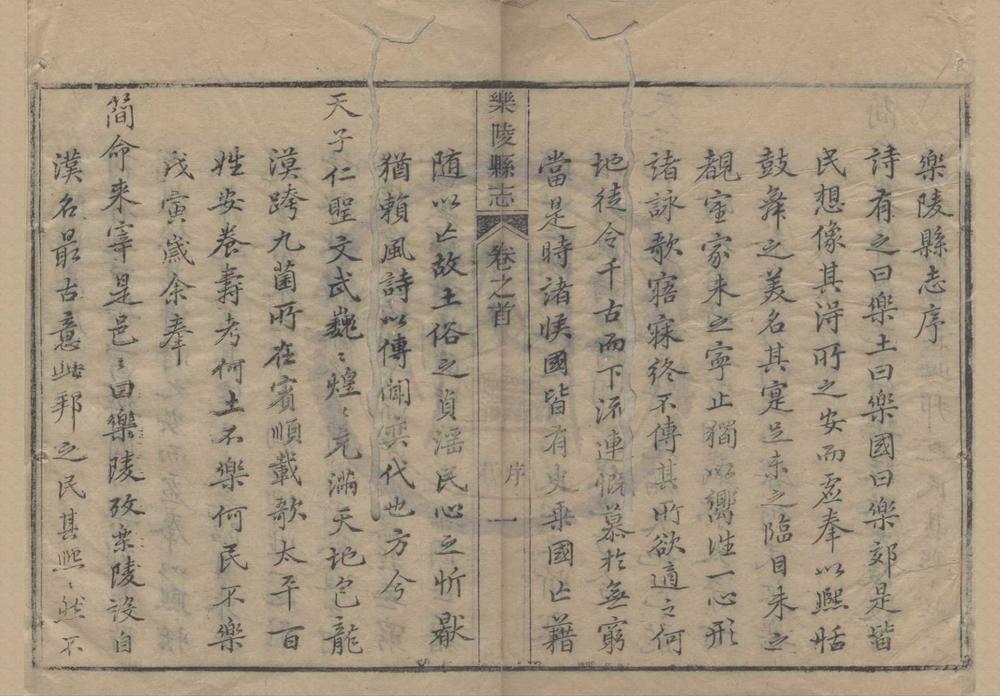 樂陵縣志序
詩有之曰樂土曰樂國曰樂郊是皆
民想像其淂所之安而虛奉以熈恬
鼓舜之美名其寔足未之臨目未之
覩室家未之寧止獨以嚮徃一心形
諸詠歌寤寐終不傳其所欲適之何
地徒令千古而下流連慨慕扵無窮
當是時諸侯國皆有史乘國亡藉
樂陵縣志 卷之首 序 一
随以亡故土俗之貞滛民心之忻厭
猶賴風詩以傳聞奕代也方今
天子仁聖文武巍〻煌〻充滿天地包龍
漠跨九菌所在賓順載歌太平百
姓安養壽考何土不樂何民不樂
戊寅歲余奉
簡命来宰是邑〻曰樂陵攷樂陵設自
漢名最古意此邦之民其熈〻然不